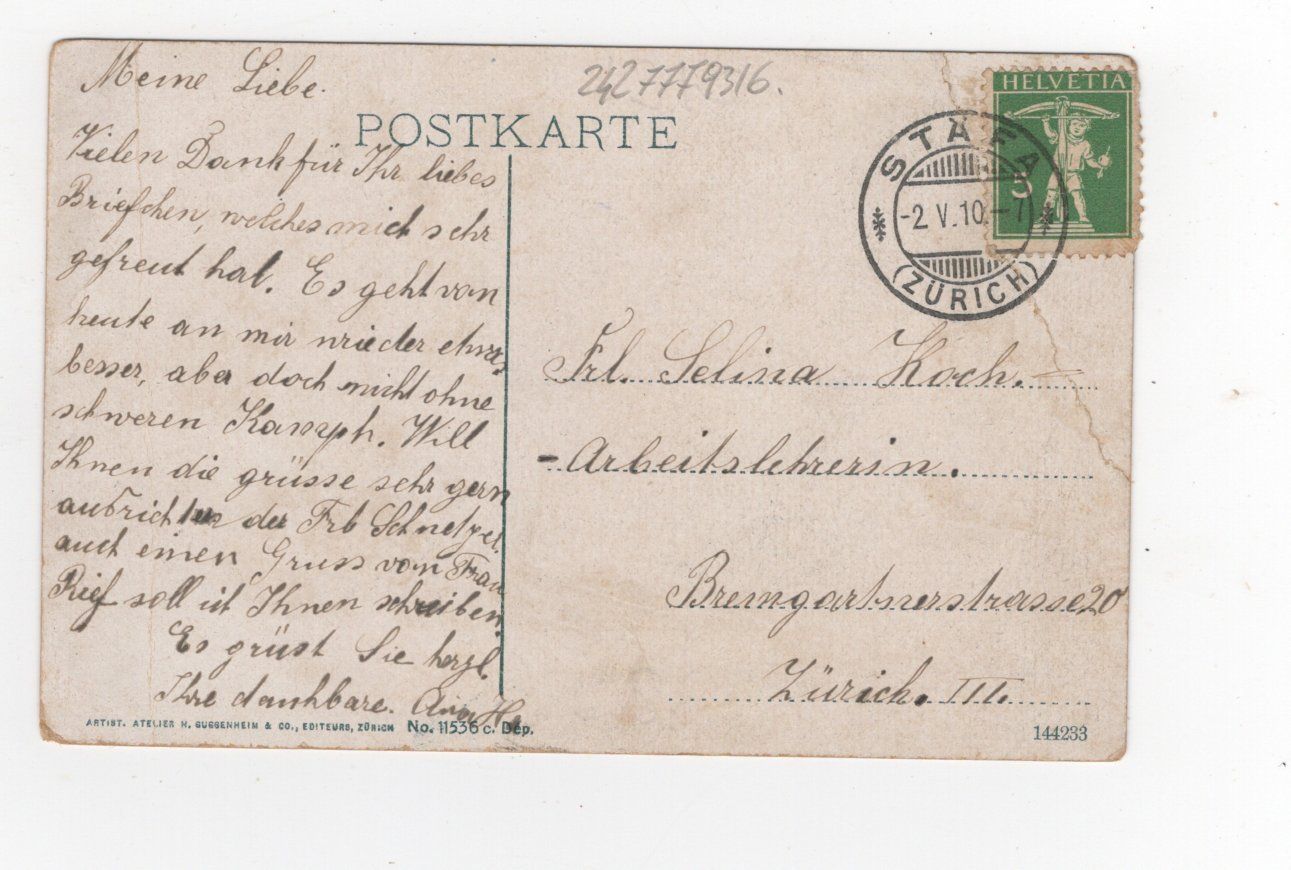 Meine Liebe.
Vielen Dank für Ihr liebes
Briefchen, welches mich sehr
gefreut hat. Es geht von
heute an mir wieder etwas
besser, aber doch nicht ohne
schweren Kampf. Will
Ihnen die grüsse sehr gern
ausrichten der Frl
auch einen Gruss von Frau
soll ich Ihnen schreiben.
Es grüst Sie herzl.
Ihre dankbare. H.
2427779316.
POSTKARTE
HELVETIA
5
STÄFA
-2.V.10.-7
(ZÜRICH)
Frl. Selina Koch.
-Arbeitslehrerin.
Bremgartnerstrasse 20
Zürich. III.
ARTIST. ATELIER H. GUGGENHEIM & CO., EDITEURS, ZÜRICH No. 11536 c. Dép.
144233